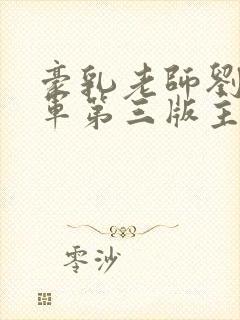 豪乳老師劉
單第三版主
零沙